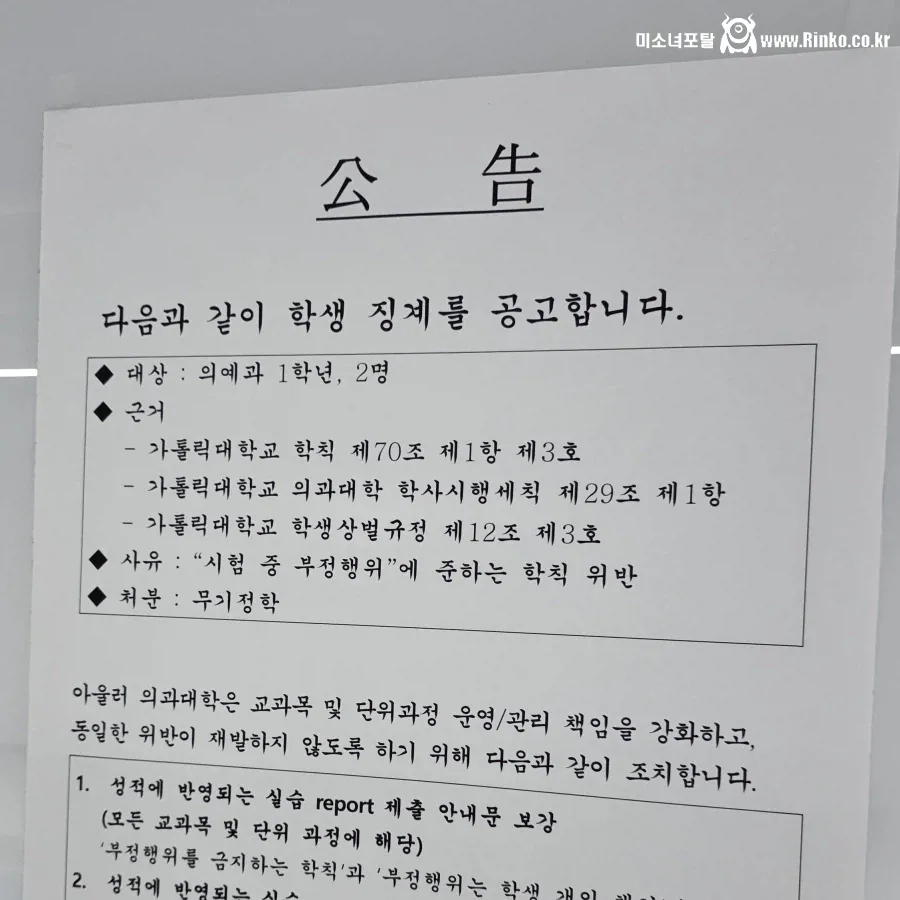 미소녀포탈 www.Rinko.co.kr
公 告
다음과 같이 학생 징계를 공고합니다.
◆ 대상 : 의예과 1학년, 2명
◆ 근거
- 가톨릭대학교 학칙 제70조 제1항 제3호
- 가톨릭대학교 의과대학 학사시행세칙 제29조 제1항
- 가톨릭대학교 학생상벌규정 제12조 제3호
◆ 사유 : “시험 중 부정행위”에 준하는 학칙 위반
◆ 처분 : 무기정학
아울러 의과대학은 교과목 및 단위과정 운영/관리 책임을 강화하고,
동일한 위반이 재발하지 않도록 하기 위해 다음과 같이 조치합니다.
1. 성적에 반영되는 실습 report 제출 안내문 보강
(모든 교과목 및 단위 과정에 해당)
'부정행위를 금지하는 학칙'과 '부정행위는 학생 개인
2. 성적에 반영되는 실습